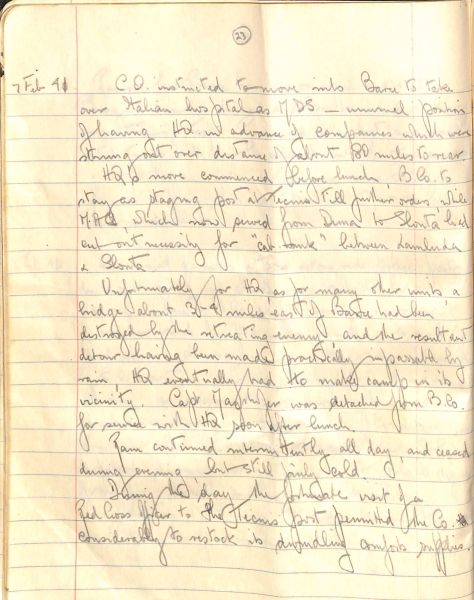 23
7 Feb 41 C.O. instructed to move into Barce to take
over Italian hospital as MDS – unusual position
of having HQ in advance of companies which were
strung out over distance of about 80 miles to rear.
HQ's move commenced before lunch, B Co. to
stay as staging post at Tecnis till further orders while
M.A.C. which now served from Derna to Slonta had
cut out necessity for "cat-tank" between Lamluda
& Slonta
Unfortunately for HQ, as for many other units, a
bridge about 3-4 miles east of Barce had been
destroyed by the retreating enemy and the resultant
detour having been made practically impassable by
rain, HQ eventually had to make camp in its
vicinity. Capt. was detached from B Co.
for service with HQ soon after lunch.
Rain continued intermittently all day, and ceased
during evening but still fairly cold.
During the day the fortunate visit of a
Red Cross Officer to the Tecnis post permitted the Co.
considerably to restock its dwindling comforts supplies.